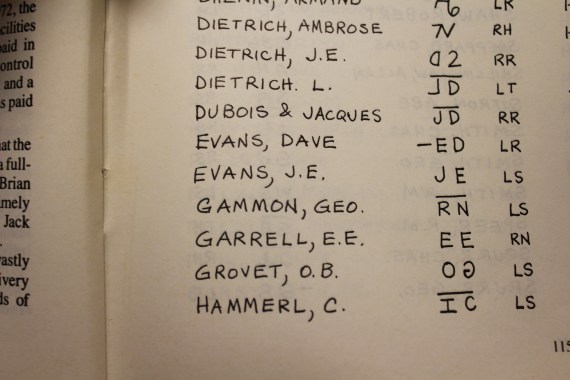 72, the
cilities
paid in
ontrol
and a
s paid
at the
a full-
Brian
mely
Jack
astly
ivery
ds of
ARMAND LR
DIETRICH, AMBROSE N RH
DIETRICH, J.E. RR
DIETRICH. L. JD LT
DUBOIS & JACQUES JD RR
EVANS, DAVE -ED LR
EVANS, J.E. JE LS
GAMMON, GEO. RN LS
GARRELL, E.E. EE RN
GROVET, O.B. LS
HAMMERL, C. IC LS
115